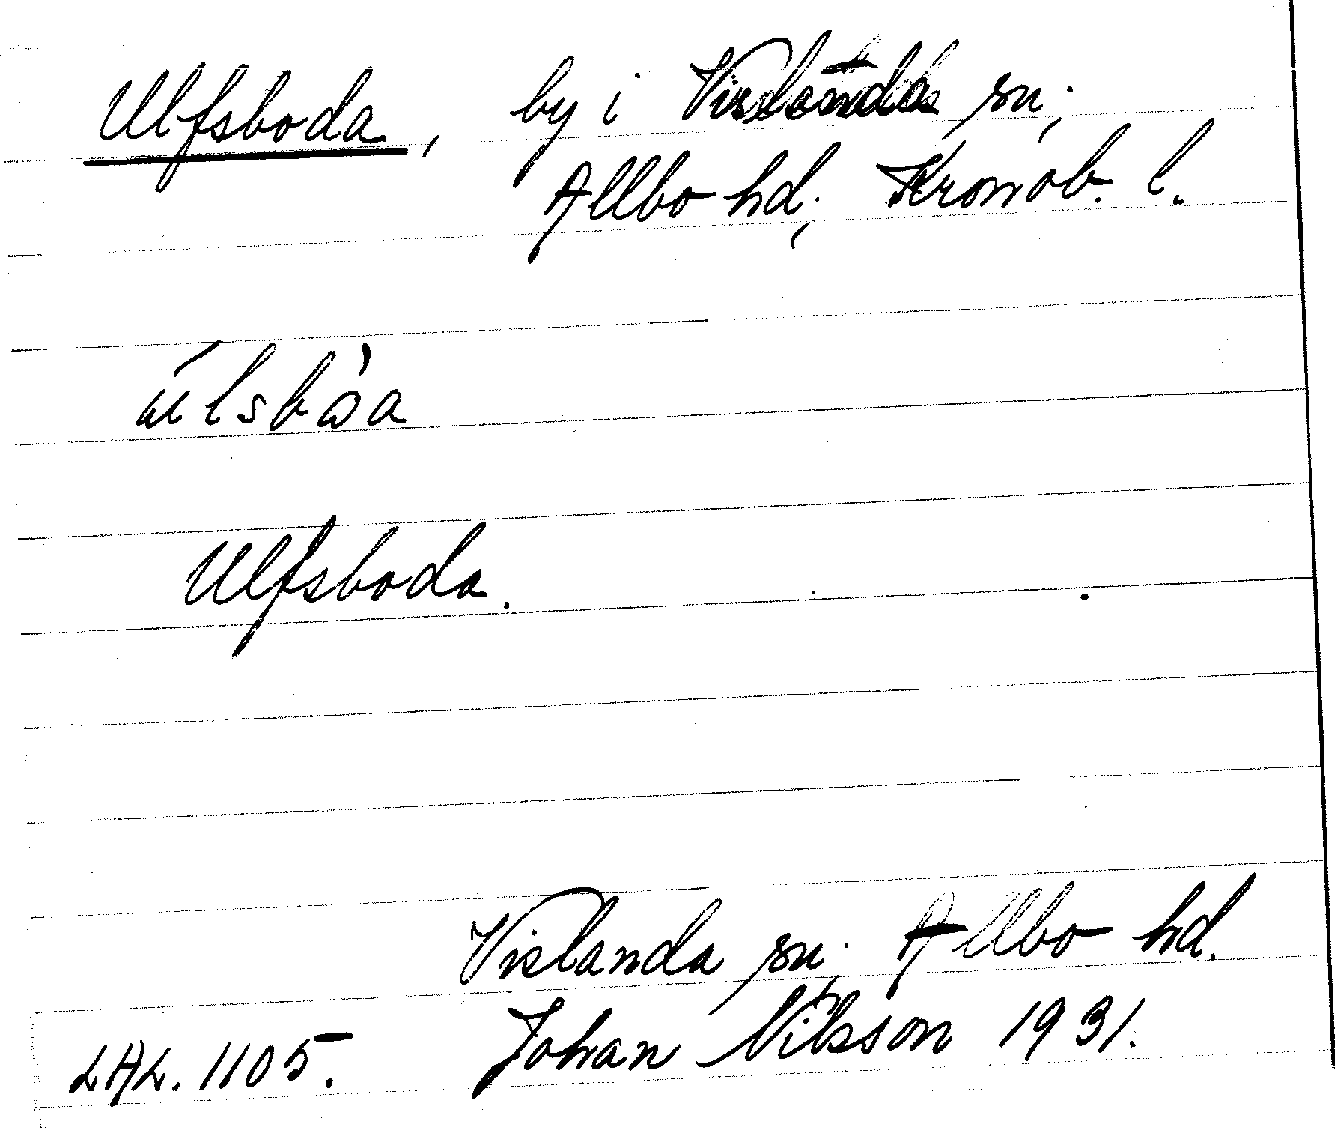 Ulfsboda, by i Vislanda sn,
Allbo hd, Kronob. l.
úlsbòa
Ulfsboda.
Vislanda sn, Allbo hd.
LAL. 1105. Johan Nilsson 1931.